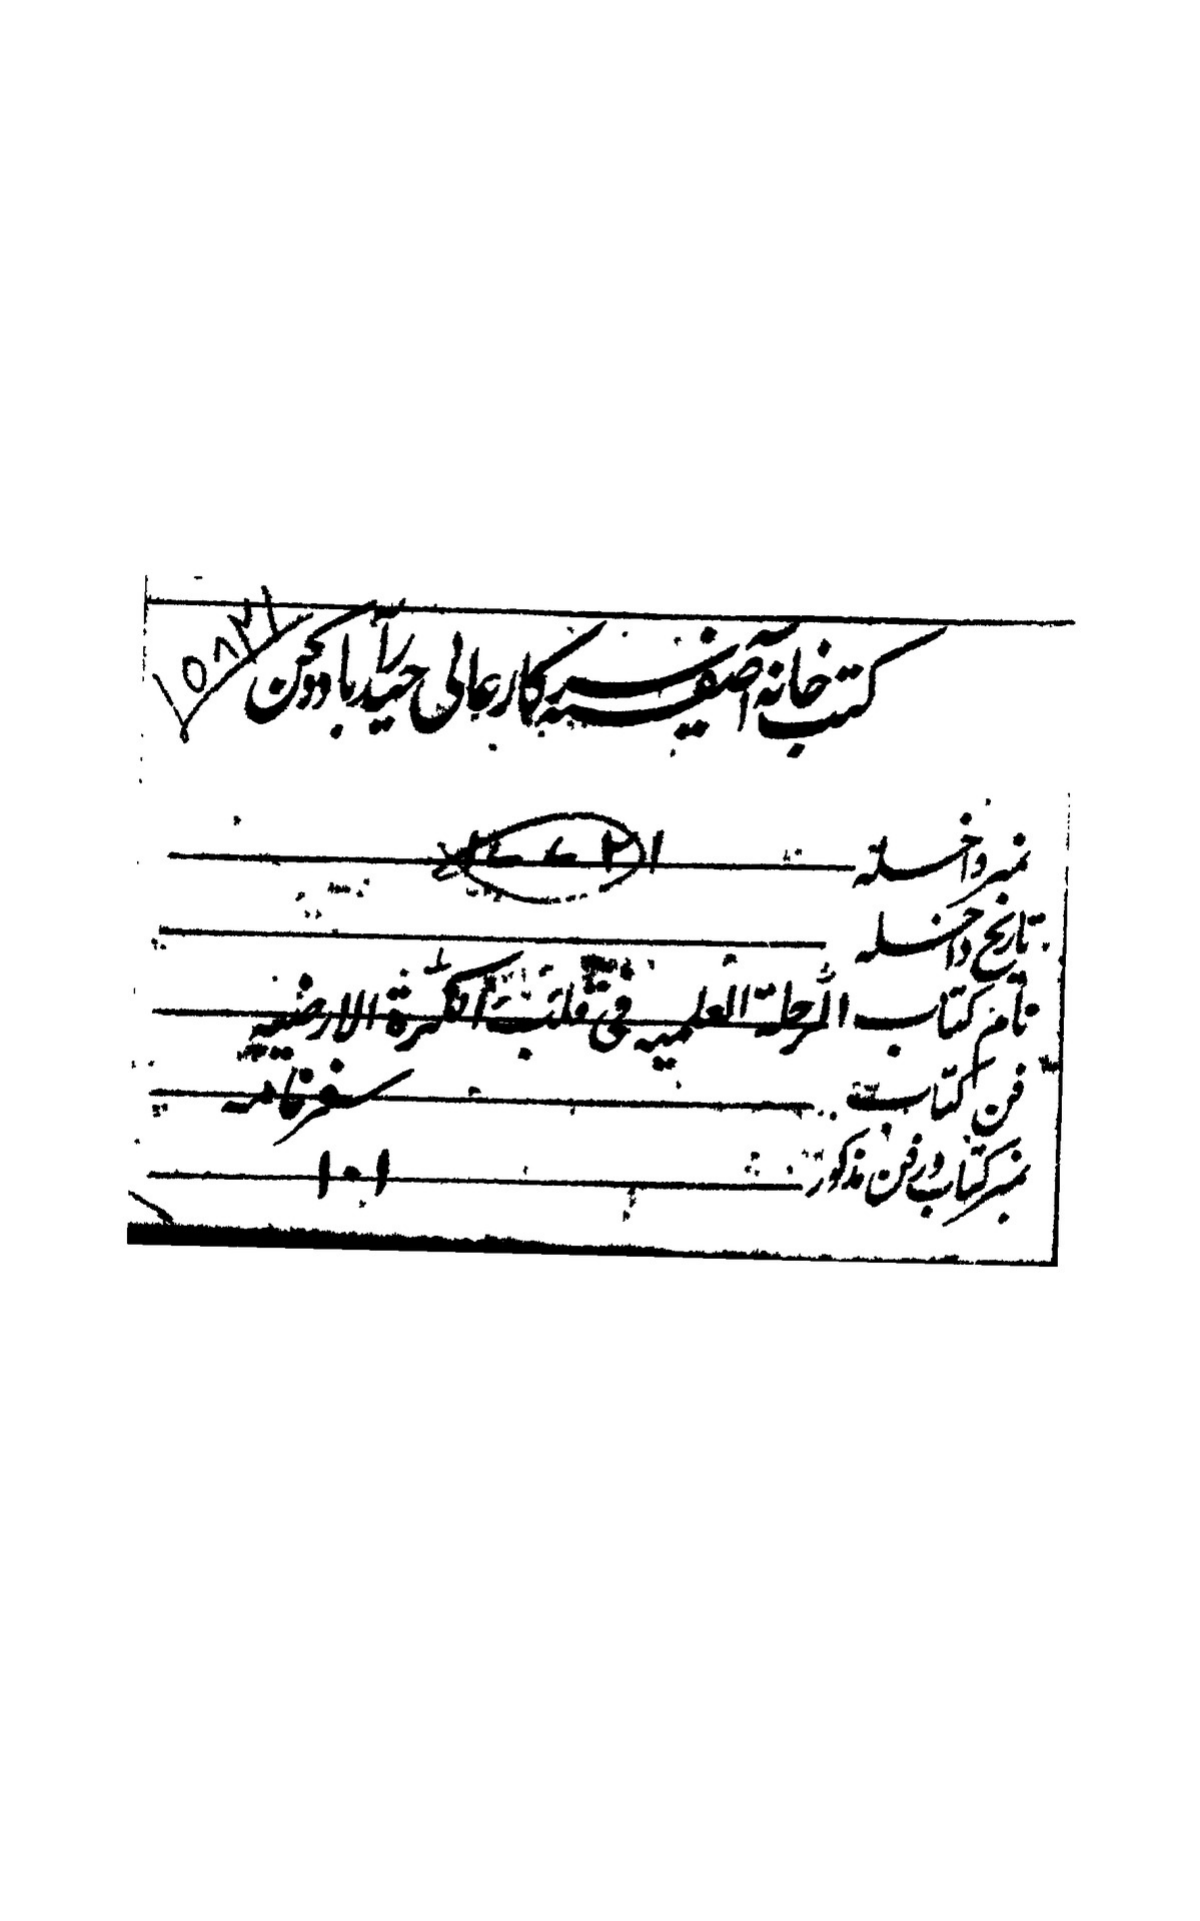 کتب خانہ آصفیہ سرکار عالی حیدرآباد دکن
نمبر داخلہ
تاریخ داخلہ
نام کتاب الرحلة العلمیه فی قلب الکرة الارضیه
فن کتاب سفرنامه
نمبر کتاب در فن مذکور ۱۰۱